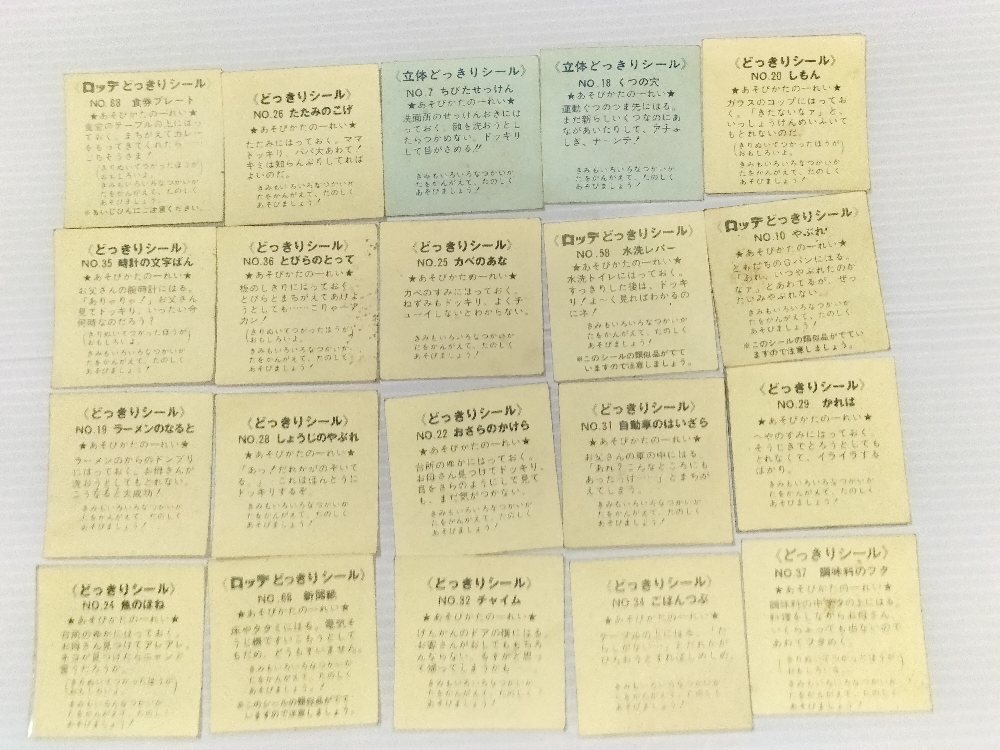 ロッテどっきりシール
NO.88 食券プレート
★あそびかたの一れい★
食堂のテーブルの上にはっ
ておく。まちがえてカレー
をもってきてくれたら、
ごちそうさま!
(きりぬいてつかったほうが
おもしろいよ。)
きみもいろいろなつかいか
たをかんがえて、たのしく
あそびましょう!
《どっきりシール》
NO.26 たたみのこげ
★あそびかたの一れい★
たたみにはっておく。ママ
ドッキリ、パパ大あわて!
キミは知らんぷりしてれば
よいのだ。
きみもいろいろなつかいか
たをかんがえて、たのしく
あそびましょう!
《立体どっきりシール》
NO.7 ちびたせっけん
★あそびかたの一れい★
洗面所のせっけんおきには
っておく。顔を洗おうとし
たらつかめない。ドッキリ
して目がさめる!!
きみもいろいろなつかいか
たをかんがえて、たのしく
あそびましょう!
《立体どっきりシール》
NO.18 くつの穴
★あそびかたの一れい★
運動ぐつのつま先にはる。
まだ新らしいくつなのにあ
ながあいたりして、アナふ
しぎ、ナーンデ!
きみもいろいろなつかいか
たをかんがえて、たのしく
あそびましょう!
《どっきりシール》
NO.20 しもん
★あそびかたの一れい★
ガラスのコップにはってお
く。「きたないなァ」と、
いっしょうけんめいふいて
もとれないのだ。
(きりぬいてつかったほうが
おもしろいよ。)
きみもいろいろなつかいか
たをかんがえて、たのしく
あそびましょう!
《どっきりシール》
NO.35 時計の文字ばん
★あそびかたの一れい★
お父さんの腕時計にはる。
「ありゃりゃ!」お父さん
見てドッキリ、いったい今
何時なのだろう?
(きりぬいてつかったほうが
おもしろいよ。)
きみもいろいろなつかいか
たをかんがえて、たのしく
あそびましょう!
《どっきりシール》
NO.36 とびらのとって
★あそびかたの一れい★
とびらとまちがえてあけよ
うとしても……こりゃーア
カン!
(きりぬいてつかったほうが
おもしろいよ。)
きみもいろいろなつかいか
たをかんがえて、たのしく
あそびましょう!
《どっきりシール》
NO.25 カベのあな
★あそびかたの一れい★
カベのすみにはっておく。
ねずみもドッキリ、よくチ
ューイしないとわからない。
きみもいろいろなつかいか
たをかんがえて、たのしく
あそびましょう!
《ロッテどっきりシール》
NO.58 水洗レバー
★あそびかたの一れい★
水洗トイレにはっておく。
すっきりした後は、ドッキ
リ!よ〜く見ればわかるの
にネ!
きみもいろいろなつかいか
たをかんがえて、たのしく
あそびましょう!
※このシールの類似品がでて
いますので注意しましょう。
《ロッテどっきりシール》
NO.10 やぶれ
★あそびかたの一れい★
ともだちのGパンにはる。
「あれ、いつやぶれたのか
なァ」とあわてるが、ぜっ
たいみやぶれない。
きみもいろいろなつかいか
たをかんがえて、たのしく
あそびましょう!
※このシールの類似品がでてい
ますので注意しましょう。
《どっきりシール》
NO.19 ラーメンのなると
★あそびかたの一れい★
ラーメンのからのドンブリ
にはっておく。お母さんが
洗おうとしてもとれない。
こうなると大成功!
きみもいろいろなつかいか
たをかんがえて、たのしく
あそびましょう!
《どっきりシール》
NO.28 しょうじのやぶれ
★あそびかたの一れい★
「あっ!だれかがのぞいて
る。」これはほんとうに
ドッキリするぞ
きみもいろいろなつかいか
たをかんがえて、たのしく
あそびましょう!
《どっきりシール》
NO.22 おさらのかけら
★あそびかたの一れい★
台所のゆかにはっておく。
お母さん見つけてドッキリ、
目をさらのようにして見て
も、まだ気がつかない。
きみもいろいろなつかいか
たをかんがえて、たのしく
あそびましょう!
《どっきりシール》
NO.31 自動車のはいざら
★あそびかたの一れい★
お父さんの車の中にはる。
「あれ?こんなところにも
あったっけ…」とまちが
えてしまう。
きみもいろいろなつかいか
たをかんがえて、たのしく
あそびましょう!
《どっきりシール》
NO.29 かれは
★あそびかたの一れい★
へやのすみにはっておく。
そうじきでとろうとしても
とれなくて、イライラする
ばかり。
きみもいろいろなつかいか
たをかんがえて、たのしく
あそびましょう!
《どっきりシール》
NO.24 魚のほね
★あそびかたの一れい★
台所のゆかにはっておく。
お母さん見つけてアレアレ。
(きりぬいてつかったほうが
おもしろいよ。)
きみもいろいろなつかいか
たをかんがえて、たのしく
あそびましょう!
《ロッテどっきりシール》
NO.68 新聞紙
★あそびかたの一れい★
床やタタミにはる。電気そ
うじ機ですいこもうとして
もだめ、どうもすいません。
きみもいろいろなつかいか
たをかんがえて、たのしく
あそびましょう!
※このシールの類似品がでて
いますので注意しましょう。
《どっきりシール》
NO.32 チャイム
★あそびかたの一れい★
げんかんのドアの横にはる。
お客さんがおしてももちろ
んならない。
帰ってしまうかも
きみもいろいろなつかいか
たをかんがえて、たのしく
あそびましょう!
《どっきりシール》
NO.34 ごはんつぶ
★あそびかたの一れい★
テーブルの上にはる。
きみもいろいろなつかいか
たをかんがえて、たのしく
あそびましょう!
《どっきりシール》
NO.37 調味料のフタ
★あそびかたの一れい★
料理をしながらお母さん、
いくらふっても出ないので
あわてフタめく。
(きりぬいてつかったほうが
おもしろいよ。)
きみもいろいろなつかいか
たをかんがえて、たのしく
あそびましょう!